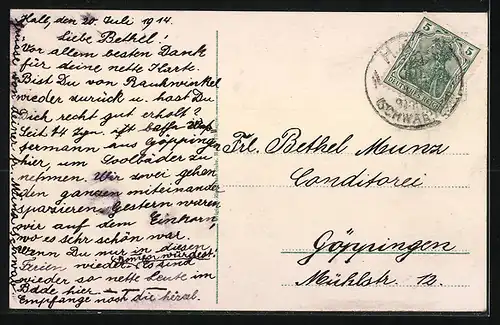 Hall, den 20. Juli 1914.
Liebe Bethel!
Vor allem besten Dank
für deine nette Karte.
Bist Du von Rauhwinkel
wieder zurück u. hast Du
Dich recht gut erholt?
Seit 14 Tgn. ist
permann aus Göppingen
hier, um Soolbäder zu
nehmen. Wir zwei gehen
den ganzen miteinander
spazieren. Gestern waren
wir auf dem Einkorn,
wo es sehr schön war.
Wenn Du nur in diesen
Ferien wieder kommen würdest.
Es sind
wieder so nette Leute im
Bade hier.
Empfange noch die herzl.
Frl. Bethel Munz
Conditorei
Göppingen
Mühlstr. 12.
5 5
(SCHWÄB.